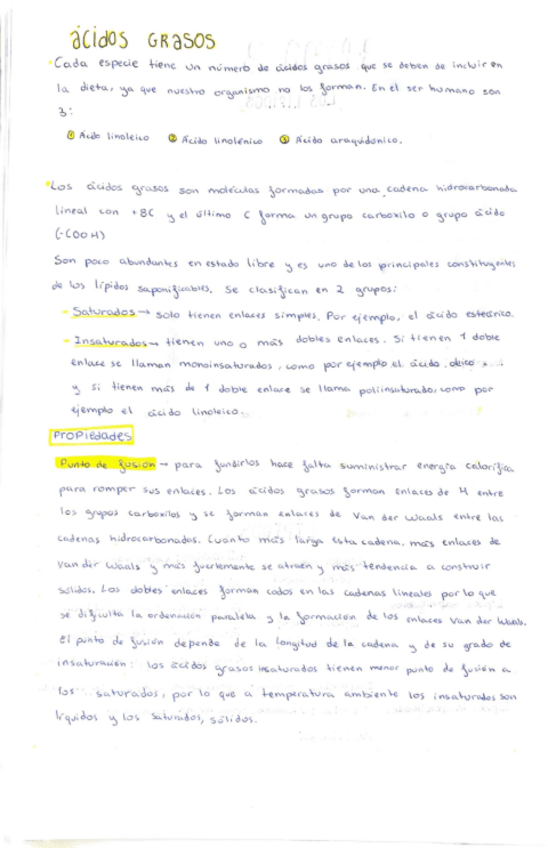 ácidos GRASOS
Cada especie tiene un número de ácidos grasos que se deben de incluir en
la dieta, ya que nuestro organismo no los forman. En el ser humano son
3:
① Ácido linoleico ② Ácido linolénico ③ Ácido araquidónico.
Los ácidos grasos son moléculas formadas por una cadena hidrocarbonada
lineal con +8C y el último C forma un grupo carboxilo o grupo ácido
(-COOH)
Son poco abundantes en estado libre y es uno de los principales constituyentes
de los lípidos saponificables. Se clasifican en 2 grupos:
- Saturados → solo tienen enlaces simples. Por ejemplo, el ácido esteárico.
- Insaturados → tienen uno o más dobles enlaces. Si tienen 1 doble
enlace se llaman monoinsaturados, como por ejemplo el ácido oleico
y si tienen más de 1 doble enlace se llama poliinsaturado, como por
ejemplo el ácido linoleico.
Propiedades
Punto de fusión → para fundirlos hace falta suministrar energía calorífica
para romper sus enlaces. Los ácidos grasos forman enlaces de H entre
los grupos carboxilos y se forman enlaces de Van der Waals entre las
cadenas hidrocarbonadas. Cuanto más larga esta cadena, más enlaces de
van der Waals y más fuertemente se atraen y más tendencia a construir
sólidos. Los dobles enlaces forman codos en las cadenas lineales por lo que
se dificulta la ordenación paralela y la formación de los enlaces Van der Waals.
El punto de fusión depende de la longitud de la cadena y de su grado de
insaturación: los ácidos grasos insaturados tienen menor punto de fusión a
los saturados, por lo que a temperatura ambiente los insaturados son
líquidos y los saturados, sólidos.